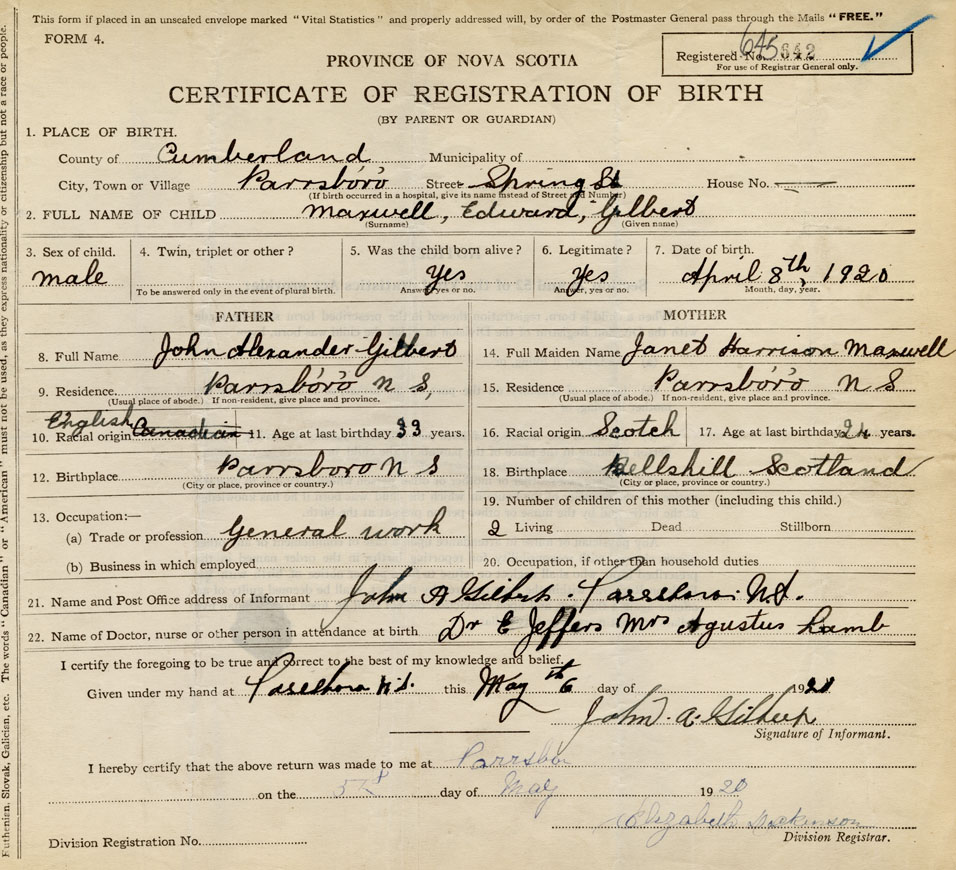 This form if placed in an unsealed envelope marked "Vital Statistics" and properly addressed will, by order of the Postmaster General pass through the Mails "FREE."
FORM 4.
Registered No. 645642
For use of Registrar General only.
PROVINCE OF NOVA SCOTIA
CERTIFICATE OF REGISTRATION OF BIRTH
(BY PARENT OR GUARDIAN)
1. PLACE OF BIRTH.
County of Cumberland Municipality of
City, Town or Village Parrsboro Street Spring St House No.
(If birth occurred in a hospital, give its name instead of Street and Number)
2. FULL NAME OF CHILD Maxwell, Edward, Gilbert
(Surname) (Given name)
3. Sex of child. 4. Twin, triplet or other? 5. Was the child born alive? 6. Legitimate? 7. Date of birth.
male Yes Yes April 8th, 1920
To be answered only in the event of plural birth. Answer, yes or no. Answer, yes or no. Month, day, year.
FATHER MOTHER
8. Full Name John Alexander Gilbert 14. Full Maiden Name Janet Harrison Maxwell
9. Residence Parrsboro N S, 15. Residence Parrsboro N S
(Usual place of abode.) If non-resident, give place and province. (Usual place of abode.) If non-resident, give place and province.
English
10. Racial origin Canadian 11. Age at last birthday 33 years. 16. Racial origin Scotch 17. Age at last birthday 24 years.
12. Birthplace Parrsboro N S 18. Birthplace Bellshill Scotland
(City or place, province or country.) (City or place, province or country.)
19. Number of children of this mother (including this child.)
13. Occupation:—
(a) Trade or profession General work 2 Living Dead Stillborn
(b) Business in which employed 20. Occupation, if other than household duties
21. Name and Post Office address of Informant John A Gilbert. Parrsboro. N.S.
22. Name of Doctor, nurse or other person in attendance at birth Dr E Jeffers Mrs Agustus Lamb
I certify the foregoing to be true and correct to the best of my knowledge and belief.
Given under my hand at Parrsboro N.S. this May 6th day of 1920
John. A. Gilbert
Signature of Informant.
I hereby certify that the above return was made to me at Parrsboro
on the day of May 1920
Elizabeth Dickinson
Division Registrar.
Division Registration No.
Ruthenian, Slovak, Galician, etc. The words "Canadian" or "American" must not be used, as they express nationality or citizenship but not a race or people.